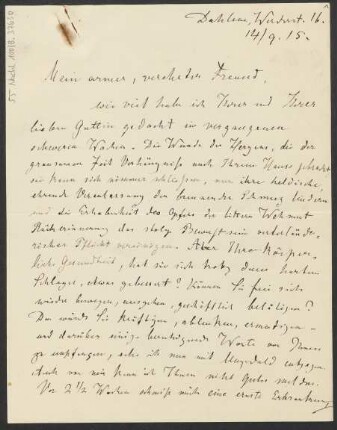 Dahlem, Werderstr. 16.
14/9. 15.
Mein armer, verehrter Freund,
wie viel habe ich Ihrer und Ihrer
lieben Gattin gedacht in vergangenen
schweren Wochen. Die Wunde des Herzens, die der
grausamen Zeit Verhängniss nach Ihrem Hause gebracht
sie kann sich nimmer schließen, nur ihre heldische,
ehrende Veranlassung den brennenden Schmerz lindern
und die Erhabenheit des Opfers der bittern Wehmut
Rückerinnerung das stolze Bewusstsein vaterländi-
scher Pflicht vereinigen. Aber Ihre Körper-
liche Gesundheit, hat sie sich trotz dem harten
Schlage, etwas gebessert? Können Sie frei sich
wieder bewegen, ausgehen, geschäftlich betätigen?
Das würde Sie kräftigen, ablenken, ermutigen -
und darüber einige beruhigende Worte von Ihnen
zu empfangen, sehe ich nun mit Ungeduld entgegen.
Auch von mir kann ich Ihnen nicht Gutes melden.
Vor 2 1/2 Wochen schmiß mich eine ernste Erkrankung